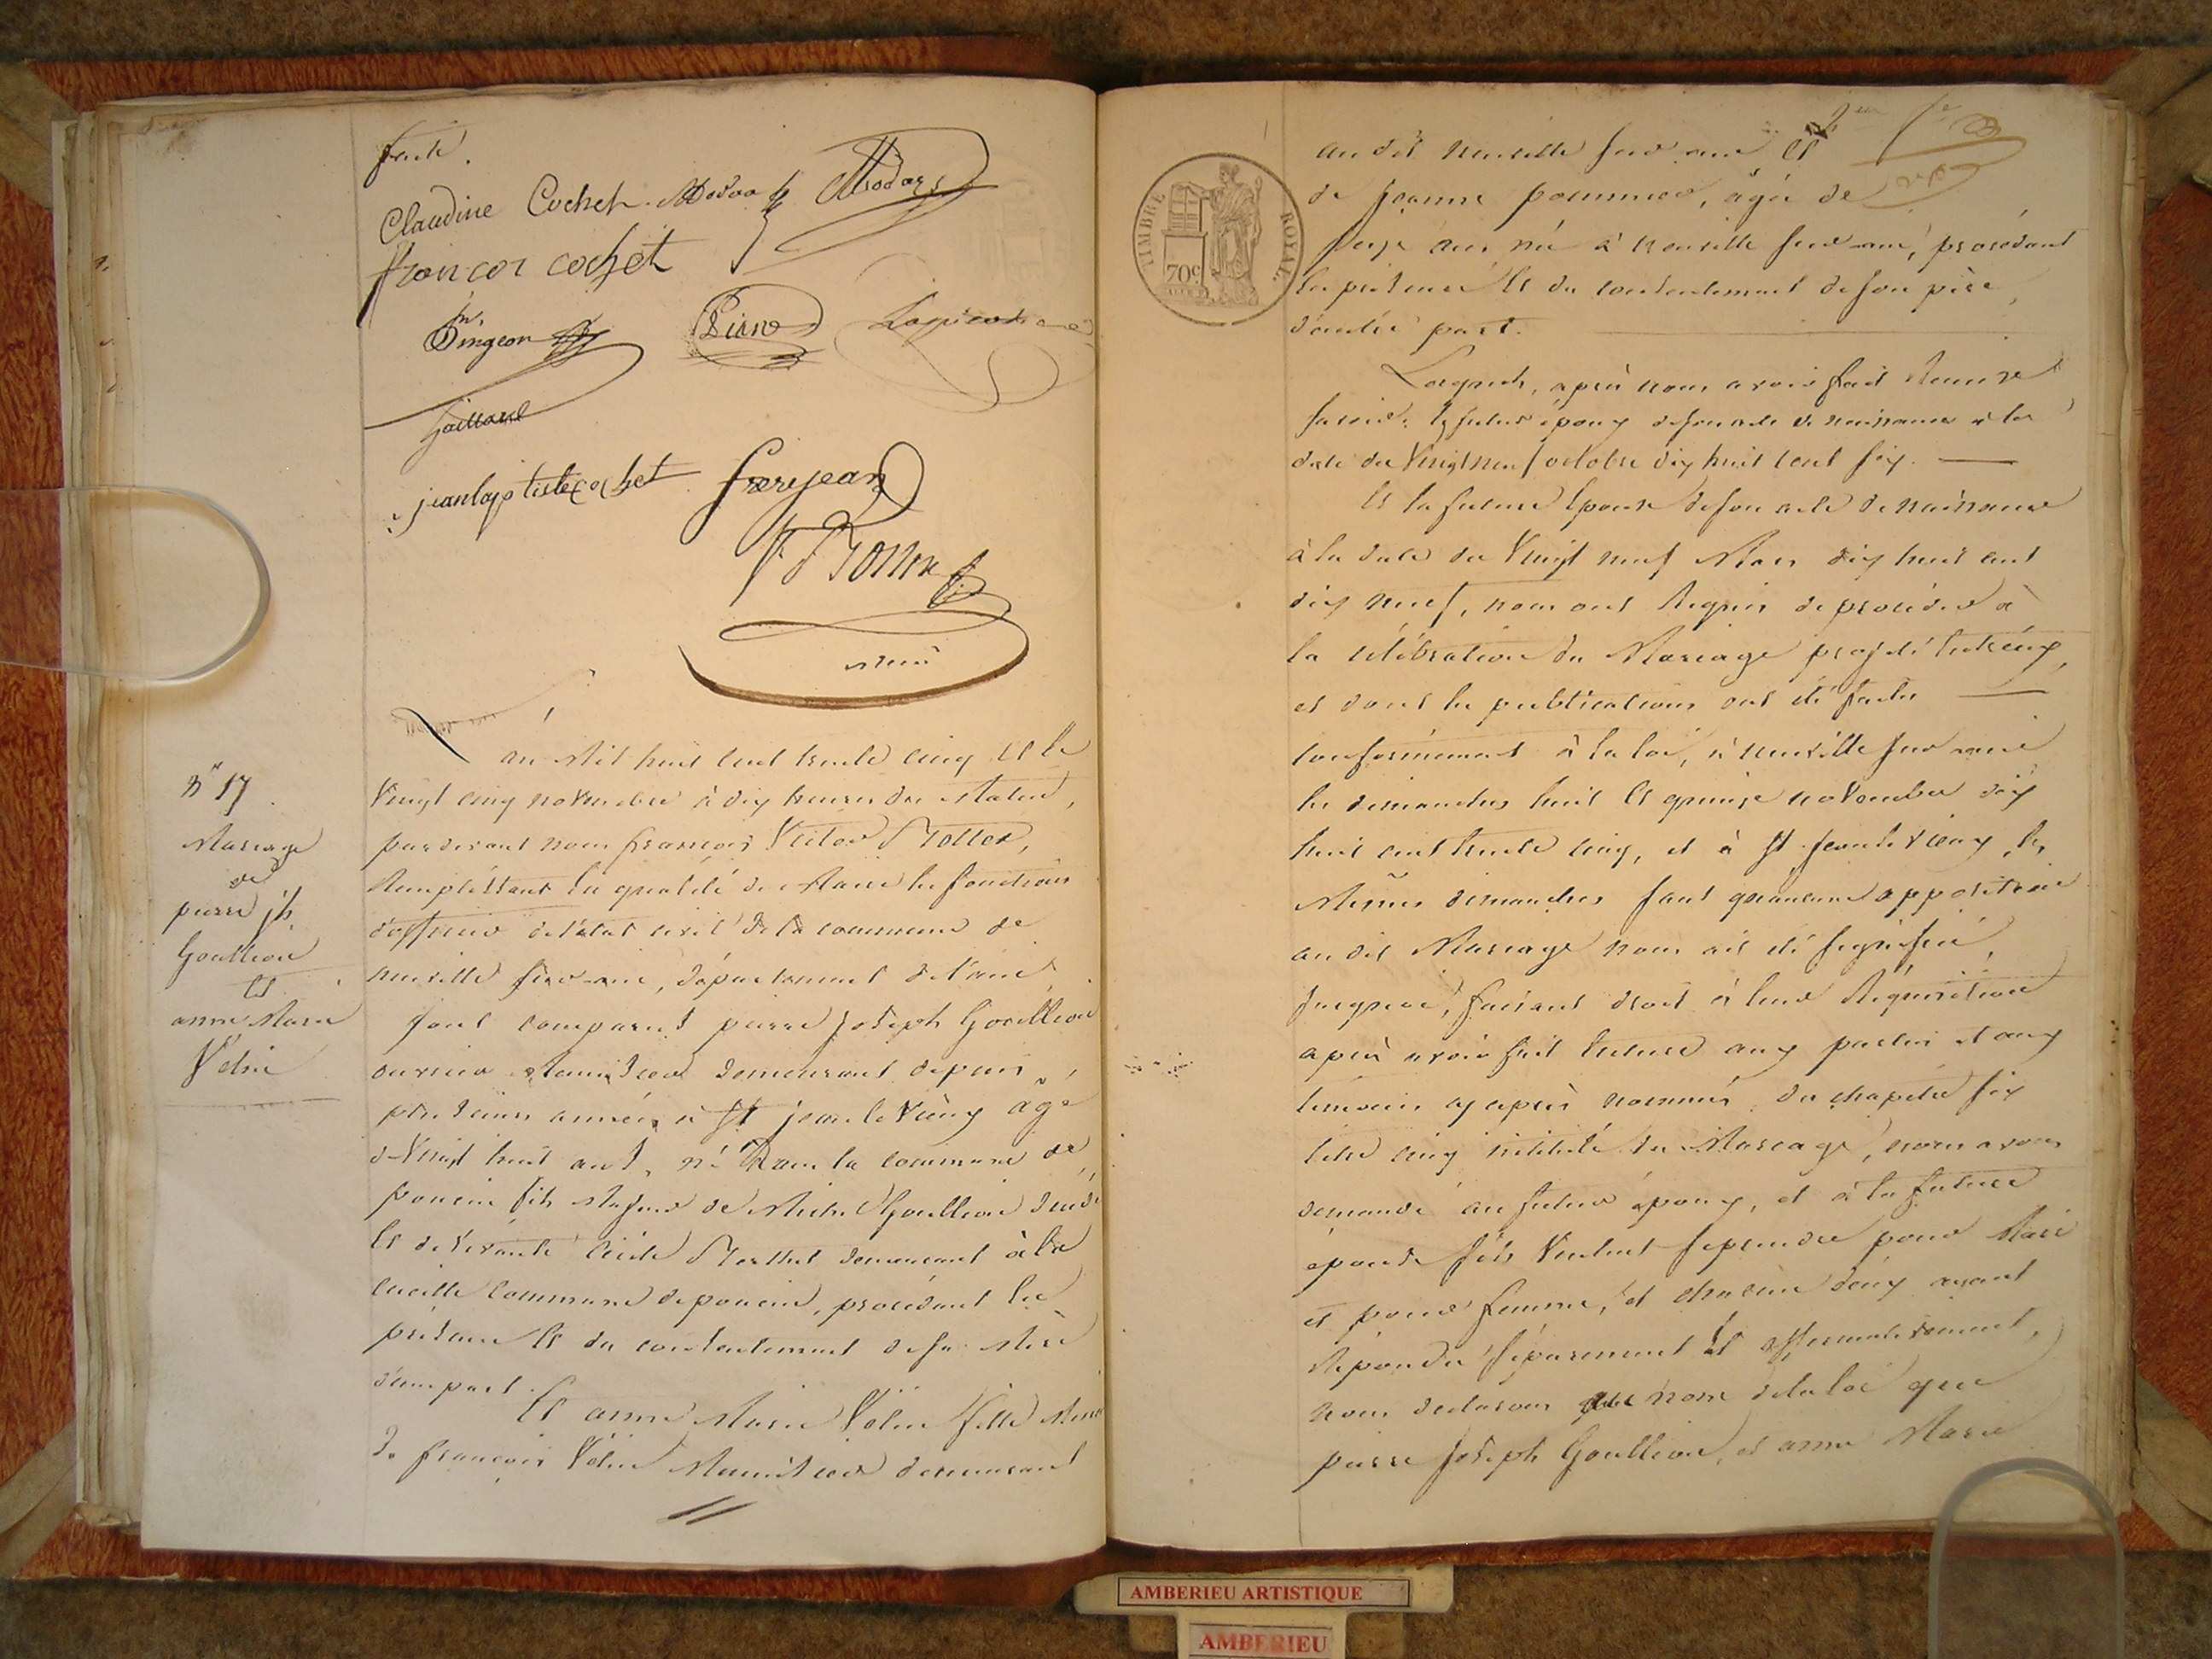 faite.
Claudine Cochet
françois cochet
Pingeon
Gaillard
jean baptiste cochet frerejean
maire
N° 17
Mariage
de
pierre jh
Goullion
Et
anne Marie
Vélin
L'an Mil huit Cent trente cinq Et le
Vingt cinq novembre à dix heures du Matin,
pardevant nous françois Victor
Remplissant En qualité de Maire les fonctions
d'officier de l'état civil de la commune de
neuville sur-ain, département de l'ain
Sont comparus pierre Joseph Goullion
ouvrier demeurant depuis
plusieurs années à St jean le Vieux agé
de Vingt huit ans, né Dans la commune de
poncin fils Majeur de Goullion
Et de vivante demeurant à
commune de poncin, procédant En
présence Et du consentement de sa Mère
d'une part.
Et anne Marie Vélin fille
De françois Vélin demeurant
TIMBRE ROYAL
70c
au dit neuville sur ain Et
de jeanne pommier, agée de
Seize ans née à neuville sur-ain, procédant
En présence Et du consentement de son père,
d'autre part.
Lesquels, après nous avoir fait Remise
savoir: Le futur époux de son acte de naissance à la
date du Vingt neuf octobre dix huit cent six.
Et la future Epouse de son acte de naissance
à la date du Vingt neuf Mars dix huit cent
dix neuf, nous ont Requis de procéder à
la célébration du Mariage projetté Entr'eux,
et dont les publications ont été faites
conformément à la loi, à neuville sur ain
les dimanches huit Et quinze novembre dix
huit cent trente cinq, et à St jean le vieux les
Mêmes dimanches sans qu'aucune opposition
au dit Mariage nous ait été signifiée,
faisant droit à leur Réquisition
après avoir fait lecture aux parties et aux
témoins cy après nommés, du chapitre six
titre cinq intitulé du Mariage, nous avons
demandé au futur époux, et à la future
épouse s'ils veulent se prendre pour Mari
et pour femme, et chacun d'eux ayant
Répondu séparément Et affirmativement,
nous déclarons au nom de la loi que
pierre Joseph Goullion, et anne Marie
AMBERIEU ARTISTIQUE
AMBERIEU